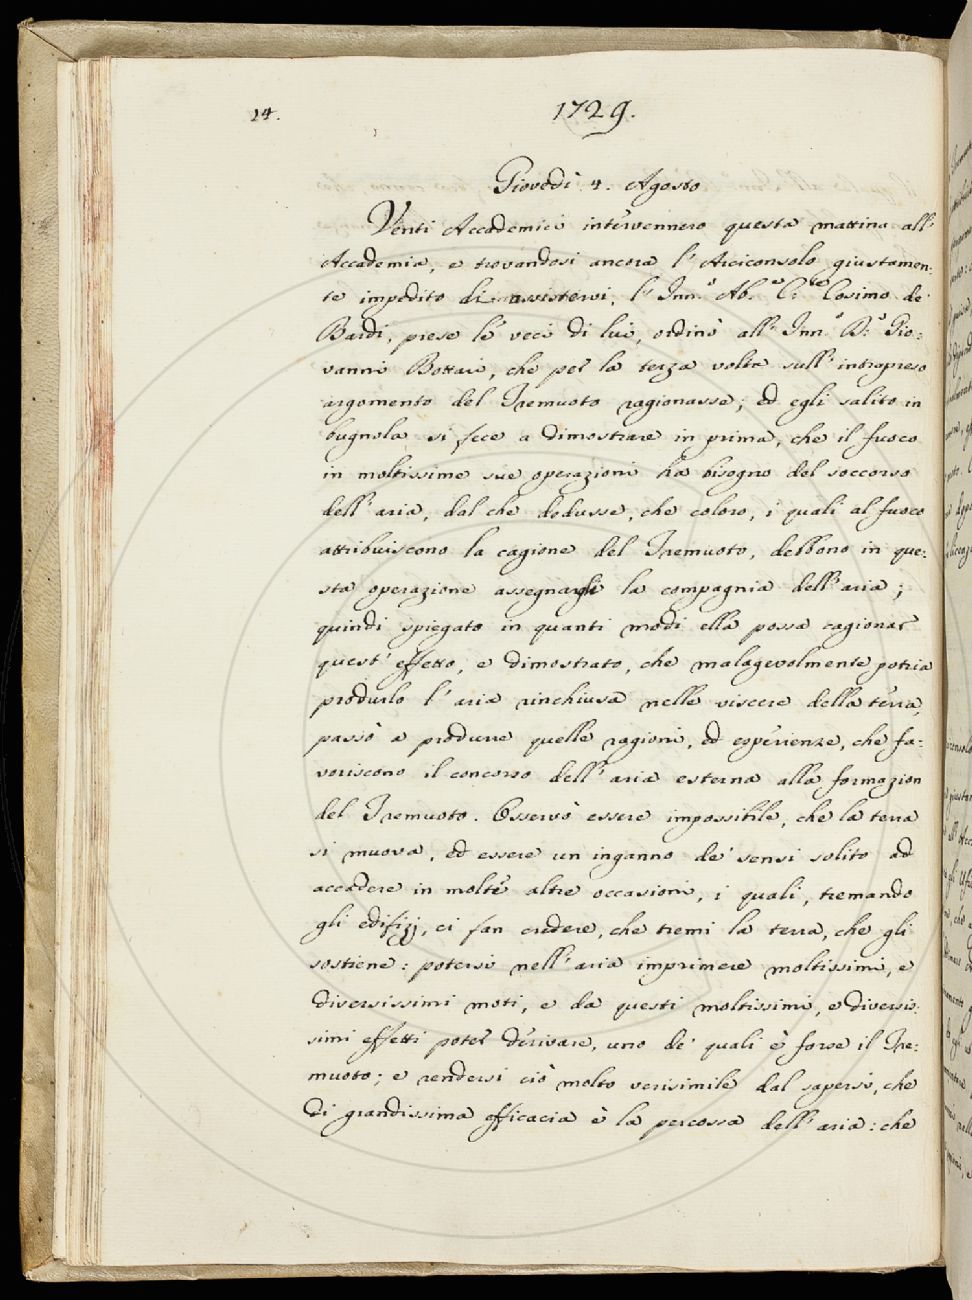 24.
1729.
Giovedì 4. Agosto
Venti Accademici intervennero questa mattina all'
Accademia, e trovandosi ancora l'Arciconsolo giustamen:
te impedito di assistervi, l'Inn.º Ab.e C.te Cosimo de'
Bardi, prese le veci di lui, ordinò all'Inn.º D.r Gio:
vanni Bottari, che per la terza volta sull'intrapreso
argomento del Tremuoto ragionasse; ed egli salito in
bugnola si fece a dimostrare in prima, che il fuoco
in moltissime sue operazioni ha bisogno del soccorso
dell'aria, dal che dedusse, che coloro, i quali al fuoco
attribuiscono la cagione del Tremuoto, debbono in que:
sta operazione assegnargli la compagnia dell'aria;
quindi spiegato in quanti modi ella possa cagionar
quest'effetto, e dimostrato, che malagevolmente potria
produrlo l'aria rinchiusa nelle viscere della terra,
passò a produrre quelle ragioni, ed esperienze, che fa:
voriscono il concorso dell'aria esterna alla formazion
del Tremuoto. Osservò essere impossibile, che la terra
si muova, ed essere un inganno de' sensi solito ad
accadere in molte altre occasioni, i quali, tremando
gli edifizj, ci fan credere, che tremi la terra, che gli
sostiene: potersi nell'aria imprimere moltissimi, e
diversissimi moti, e da questi moltissimi, e diversis:
simi effetti poter derivare, uno de' quali è forse il Tre:
muoto; e rendersi ciò molto verisimile dal sapersi, che
di grandissima efficacia è la percossa dell'aria: che